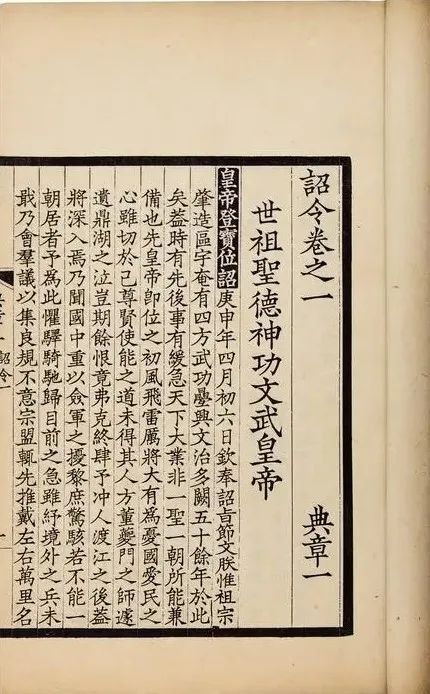 詔令卷之一 典章一
世祖聖德神功文武皇帝
皇帝登寶位詔 庚申年四月初六日欽奉詔旨節文朕惟祖宗
肇造區宇奄有四方武功疊興文治多闕五十餘年於此
矣葢時有先後事有緩急天下大業非一聖一朝所能兼
備也先皇帝卽位之初風飛雷厲將大有爲憂國愛民之
心雖切於己尊賢使能之道未得其人方董夔門之師遽
遺鼎湖之泣豈期餘恨竟弗克終肆予冲人渡江之後葢
將深入焉乃聞國中重以僉軍之擾黎庶驚駭若不能一
朝居者予爲此懼驛騎馳歸目前之急雖紓境外之兵未
戢乃會羣議以集良規不意宗盟輒先推戴左右萬里名
詔令一